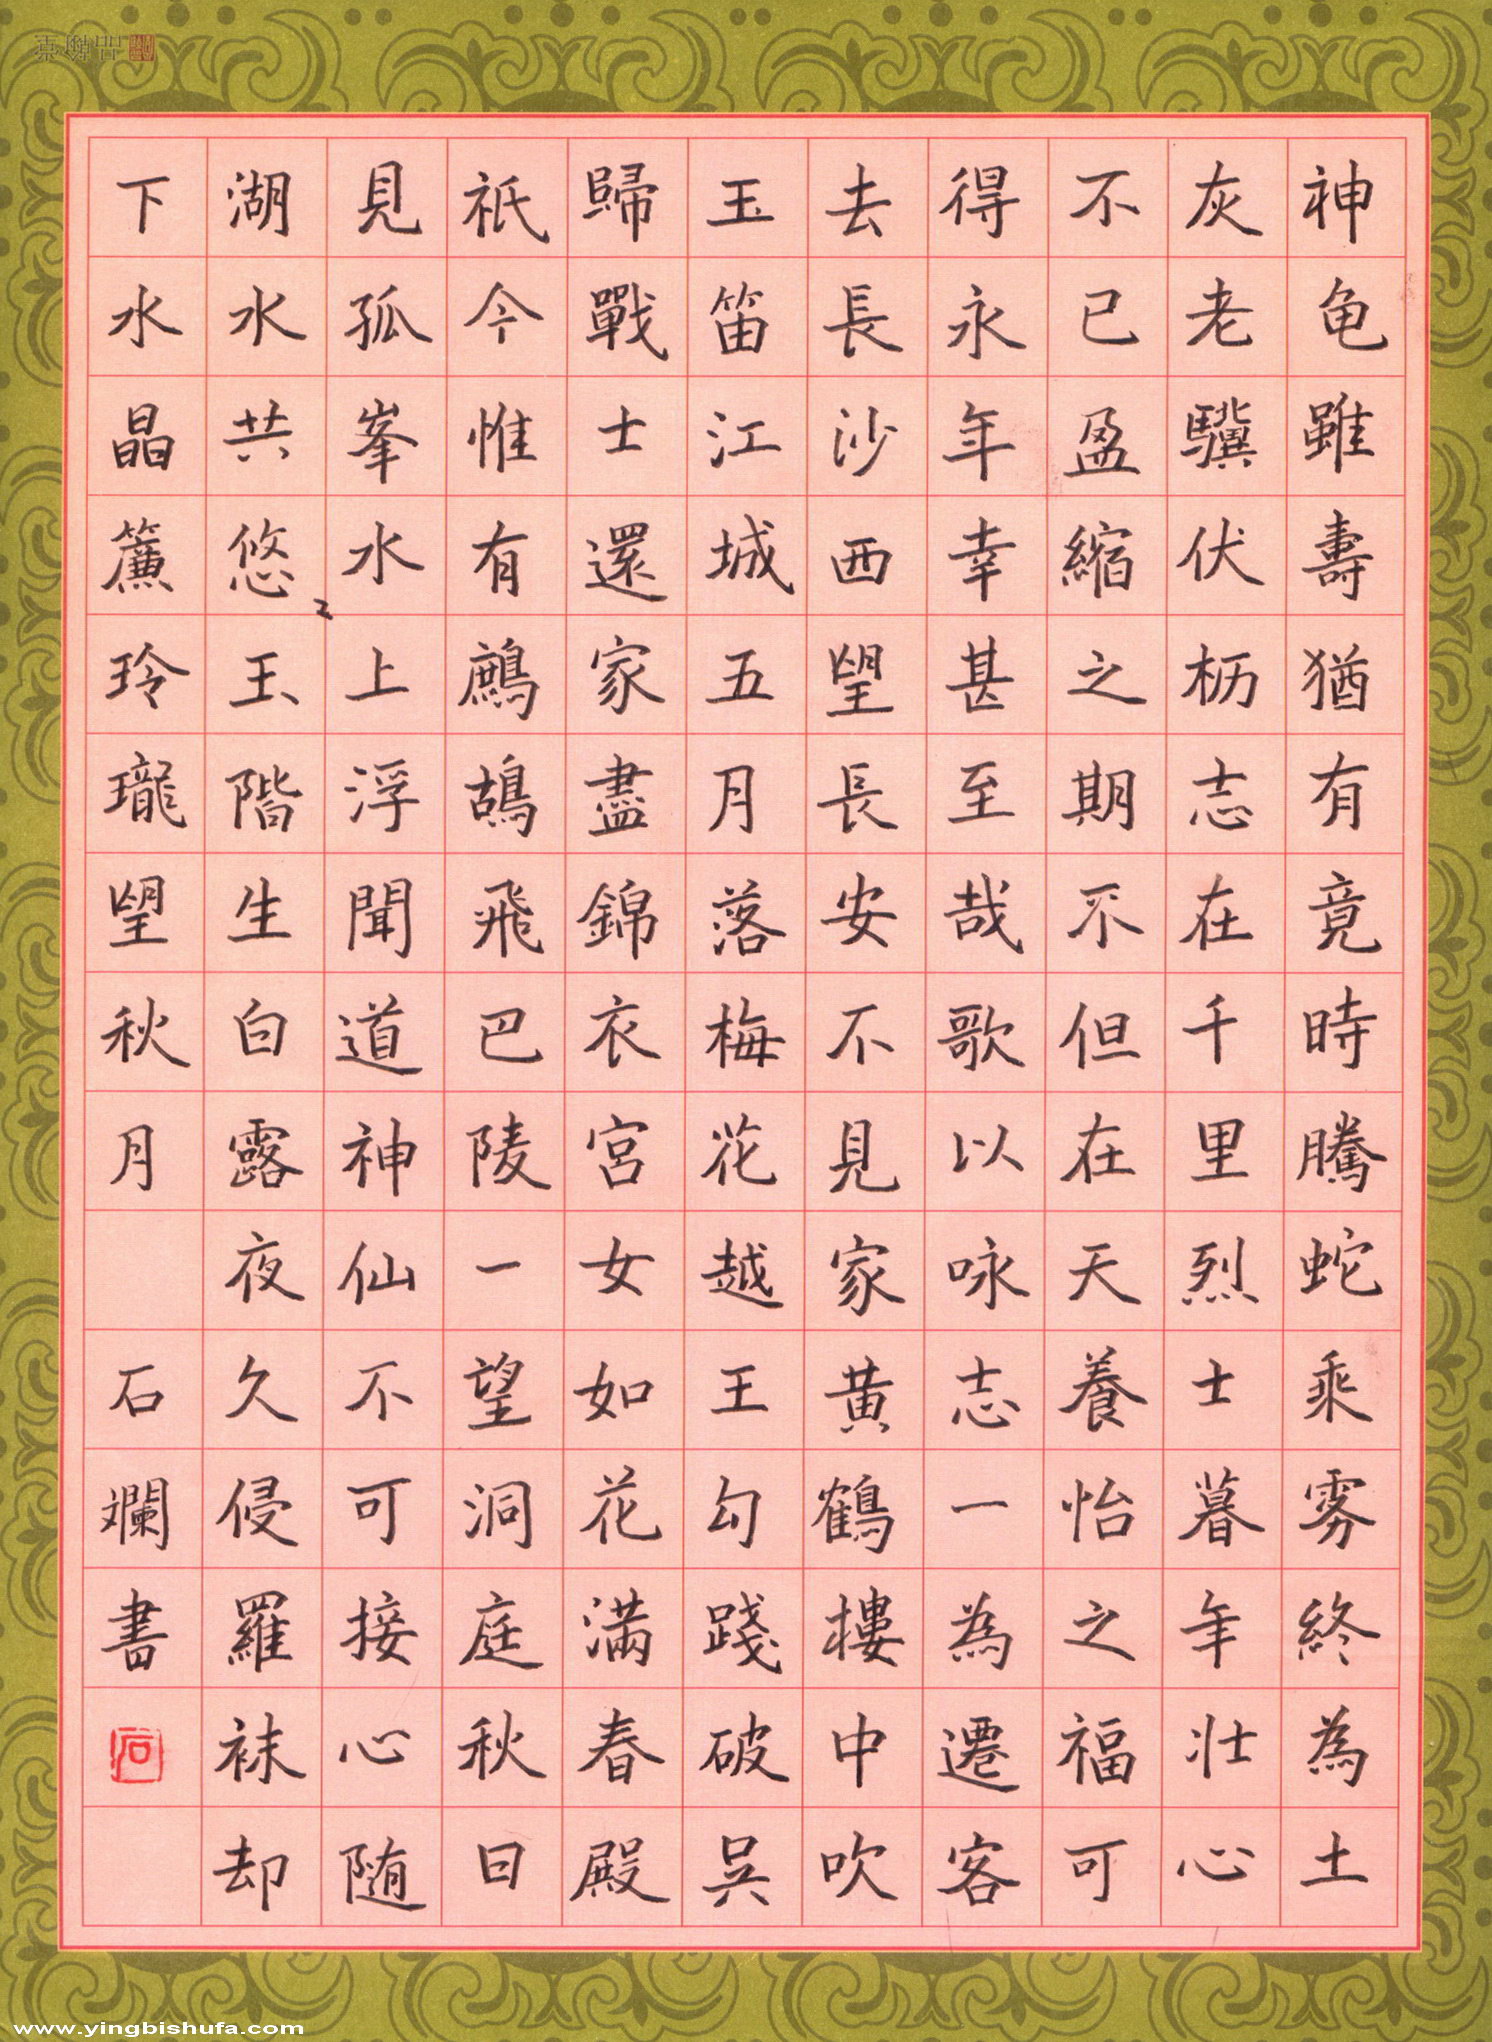 神龟雖壽猶有竟時騰蛇乘雾終為土
灰老驥伏枥志在千里烈士暮年壮心
不已盈縮之期不但在天養怡之福可
得永年幸甚至哉歌以咏志一為遷客
去長沙西望長安不見家黄鶴樓中吹
玉笛江城五月落梅花越王勾踐破吳
歸戰士還家盡錦衣宮女如花滿春殿
祇今惟有鷓鴣飛巴陵一望洞庭秋日
見孤峯水上浮聞道神仙不可接心随
湖水共悠々玉階生白露夜久侵羅袜却
下水晶簾玲瓏望秋月 石斕書
石
www.yingbishufa.com